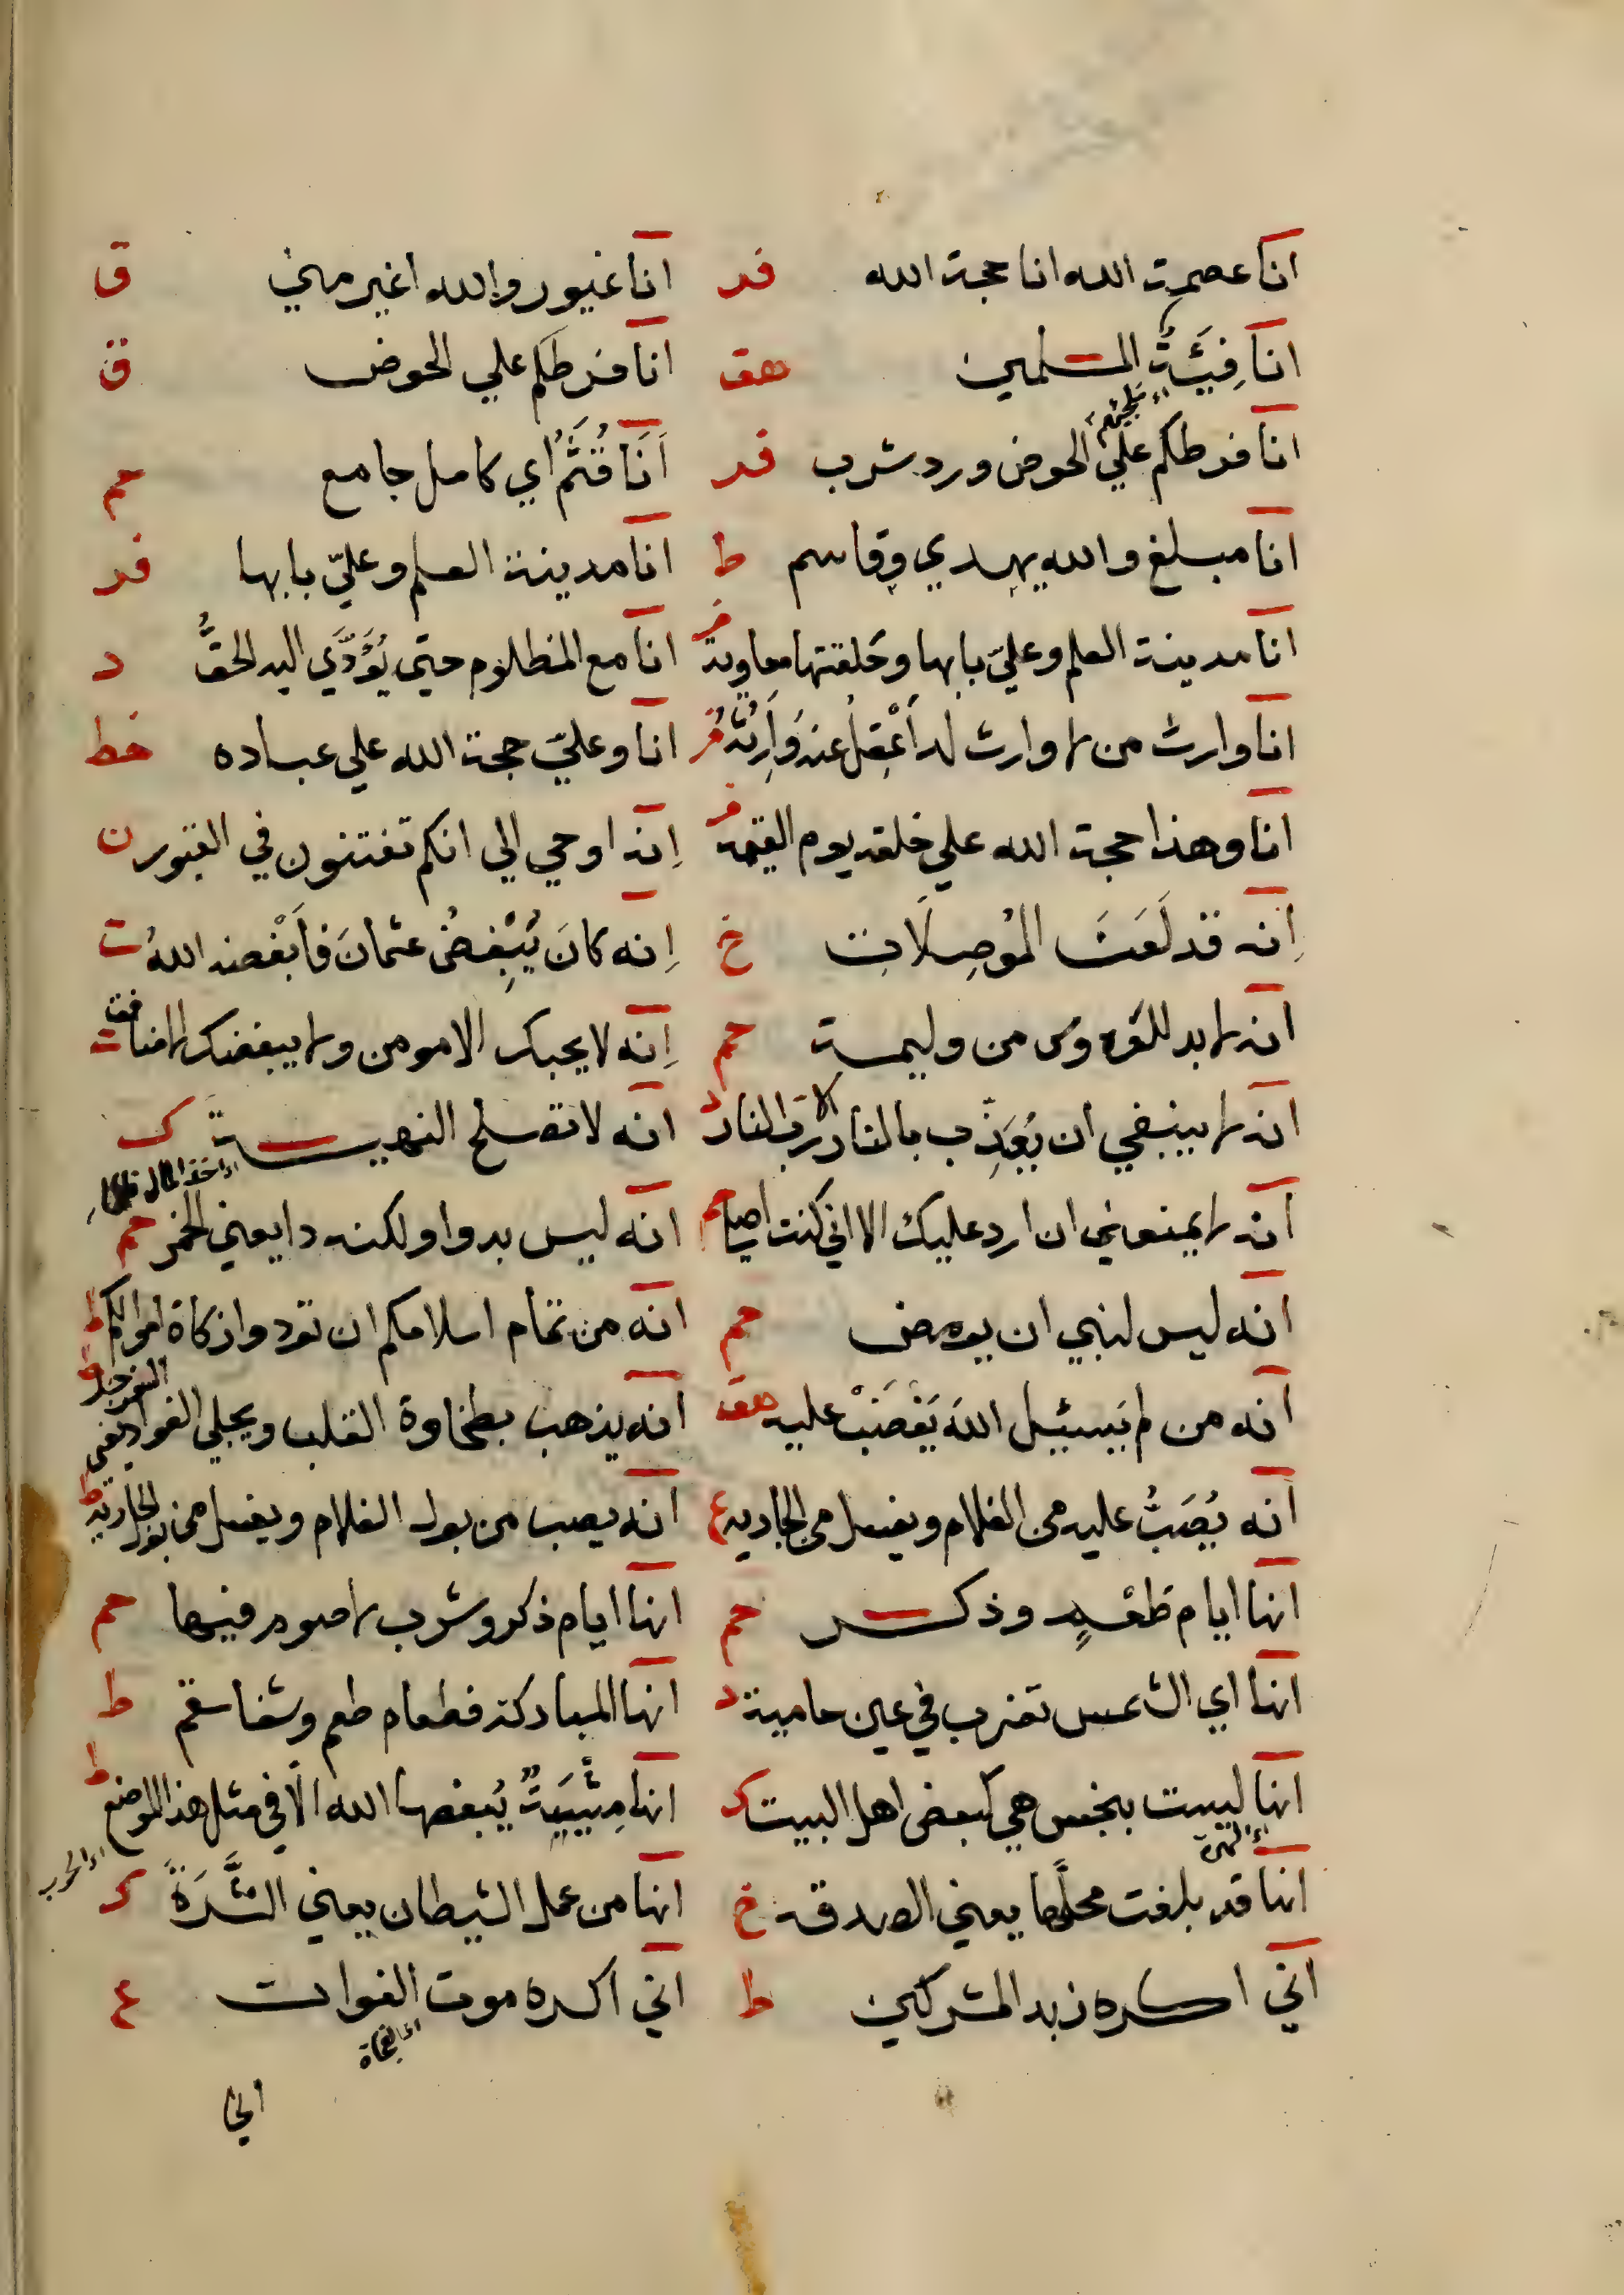 انا عصمة الله انا حجة الله فر انا غيور والله اغير مني ق
انا فِيَّةُ المسلمين هق انا فرطكم علي الحوض ق
انا فرطكم علي الحوض ورد شرب فر اَنَا قُثَمُ اي كامل جامع حم
انا مبلغ والله يهدي وقاسم ط انا مدينة العلم وعليّ بابها فر
انا مدينة العلم وعليّ بابها وحلقتها معاوية فر انا مع المظلوم حتي يُؤَدَّي اليه الحقُّ د
انا وارث من لا وارث له اَعْقِلُ عنه وَاَرِثُهُ فر انا وعليّ حجة الله علي عباده خط
انا وهذا حجة الله علي خلقه يوم القيمة فر اِنه اوحي الي انكم تفتنون في القبور ن
اِنه قد لَعَنَ المُوصِلَات خ اِنه كانَ يُبْغِضُ عثمانَ فاَبْغضه اللهُ ت
انه لا بد للعروس من وليمة حم اِنه لا يحبك الا مومن ولا يبغضك الا منافق ت
انه لا ينبغي ان يُعَذِّب بالنار الا رب النار د انه لا تصلح النهبة ك
انه لا يمنعني ان ارد عليك الا اني كنت اصلي حم انه ليس بدوا ولكنه دا يعني الخمر حم
انه ليس لنبي ان يومض حم انه من تمام اسلامكم ان تودوا زكاة اموالكم ط
انه من لم يَسئل اللهَ يَغْضَبْ عليه هق انه يذهب بطخاوة القلب ويجلي الفواد يعني السفرجل ط
انه يُصَبُّ عليه من الغلام ويغسل من الجارية ع انه يصب من بول الغلام ويغسل من بول الجارية ط
انها ايام طُعْمٍ وذكر حم انها ايام ذكر وشرب لا صوم فيها حم
انها اي الشمس تغرب في عين حامية د انها المباركة فطعام طعم وشفا سقم ط
انها ليست بنجس هي كبعض اهل البيت ك انها مِشْيَةٌ يُبغضها الله الّا في مثل هذا الموضع ط
اي الهرة اي الحرب
انها قد بلغت محلَّها يعني الصدقة خ انها من عمل الشيطان يعني النُّشْرَةَ ك
اني اكره زبد المشركين ط اني اكره موت الفوات ع
اي الفجاة
اني